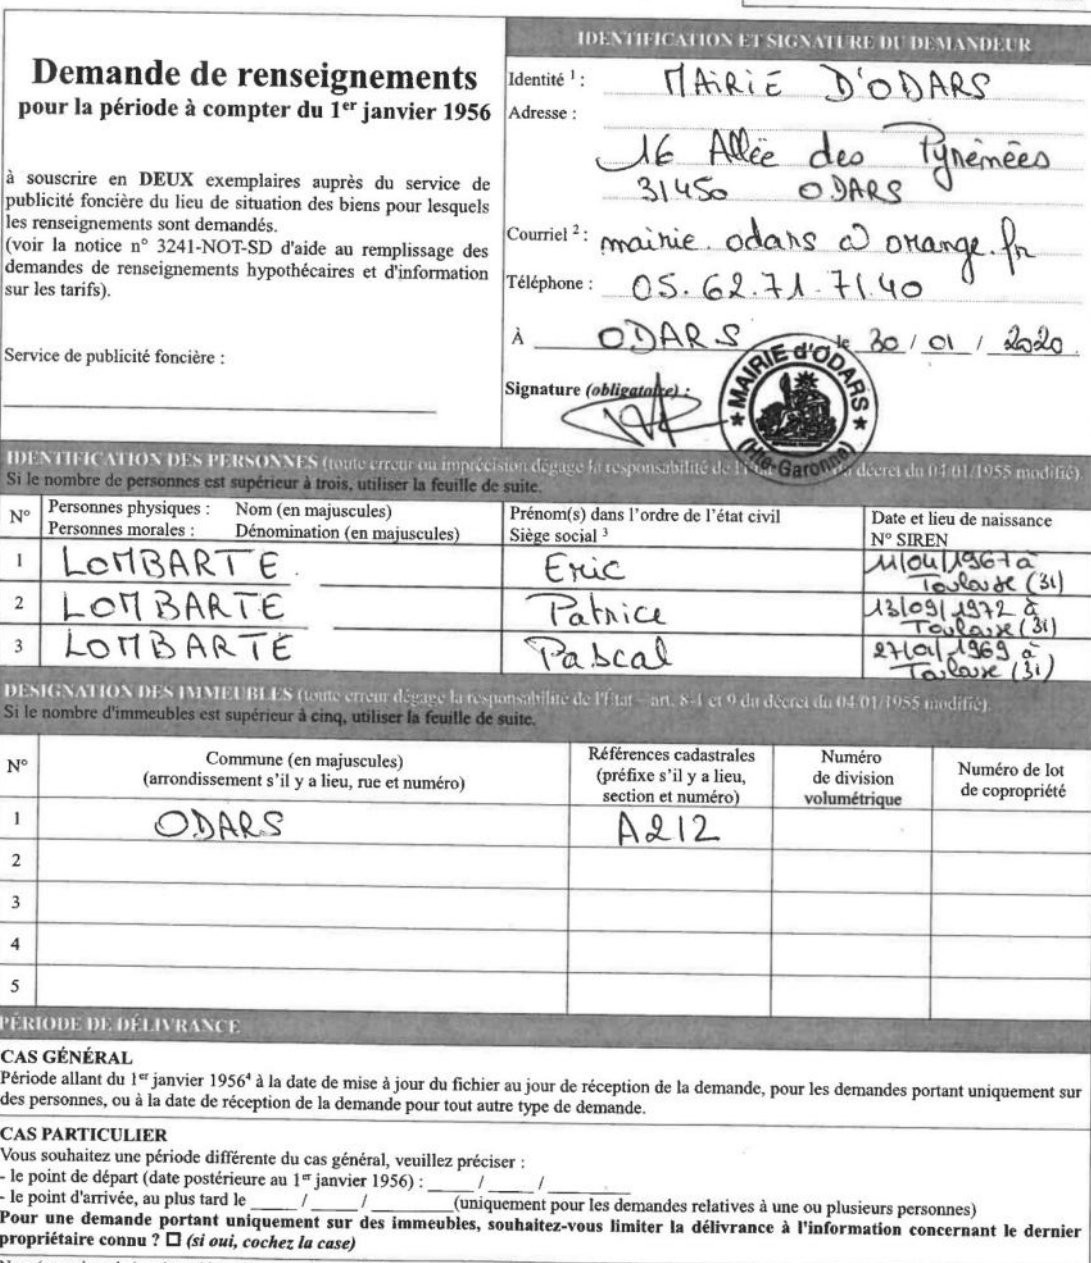 IDENTIFICATION ET SIGNATURE DU DEMANDEUR
Demande de renseignements
pour la période à compter du 1er janvier 1956
à souscrire en DEUX exemplaires auprès du service de
publicité foncière du lieu de situation des biens pour lesquels
les renseignements sont demandés.
(voir la notice n° 3241-NOT-SD d'aide au remplissage des
demandes de renseignements hypothécaires et d'information
sur les tarifs).
Service de publicité foncière :
Identité 1 : MAIRIE D'ODARS
Adresse :
16 Allée des Pyrénées
31450 ODARS
Courriel 2 : mairie.odars@orange.fr
Téléphone : 05.62.71.71.40
À ODARS le 30/01/2020
Signature (obligatoire) :
MAIRIE d'ODARS
(Hte-Garonne)
IDENTIFICATION DES PERSONNES (toute erreur ou imprécision dégage la responsabilité de l' décret du 04/01/1955 modifié).
Si le nombre de personnes est supérieur à trois, utiliser la feuille de suite.
N° Personnes physiques : Nom (en majuscules) Prénom(s) dans l'ordre de l'état civil Date et lieu de naissance
Personnes morales : Dénomination (en majuscules) Siège social 3 N° SIREN
1 LOMBARTE Eric 11/04/1967 à Toulouse (31)
2 LOMBARTE Patrice 13/09/1972 à Toulouse (31)
3 LOMBARTE Pascal 27/01/1969 à Toulouse (31)
DÉSIGNATION DES IMMEUBLES (toute erreur dégage la responsabilité de l'État – art. 8-1 et 9 du décret du 04/01/1955 modifié).
Si le nombre d'immeubles est supérieur à cinq, utiliser la feuille de suite.
N° Commune (en majuscules) (arrondissement s'il y a lieu, rue et numéro) Références cadastrales (préfixe s'il y a lieu, section et numéro) Numéro de division volumétrique Numéro de lot de copropriété
1 ODARS A212
2
3
4
5
PÉRIODE DE DÉLIVRANCE
CAS GÉNÉRAL
Période allant du 1er janvier 1956⁴ à la date de mise à jour du fichier au jour de réception de la demande, pour les demandes portant uniquement sur
des personnes, ou à la date de réception de la demande pour tout autre type de demande.
CAS PARTICULIER
Vous souhaitez une période différente du cas général, veuillez préciser :
- le point de départ (date postérieure au 1er janvier 1956) : ____ / ____ / ________
- le point d'arrivée, au plus tard le ____ / ____ / ________ (uniquement pour les demandes relatives à une ou plusieurs personnes)
Pour une demande portant uniquement sur des immeubles, souhaitez-vous limiter la délivrance à l'information concernant le dernier
propriétaire connu ? ☐ (si oui, cochez la case)